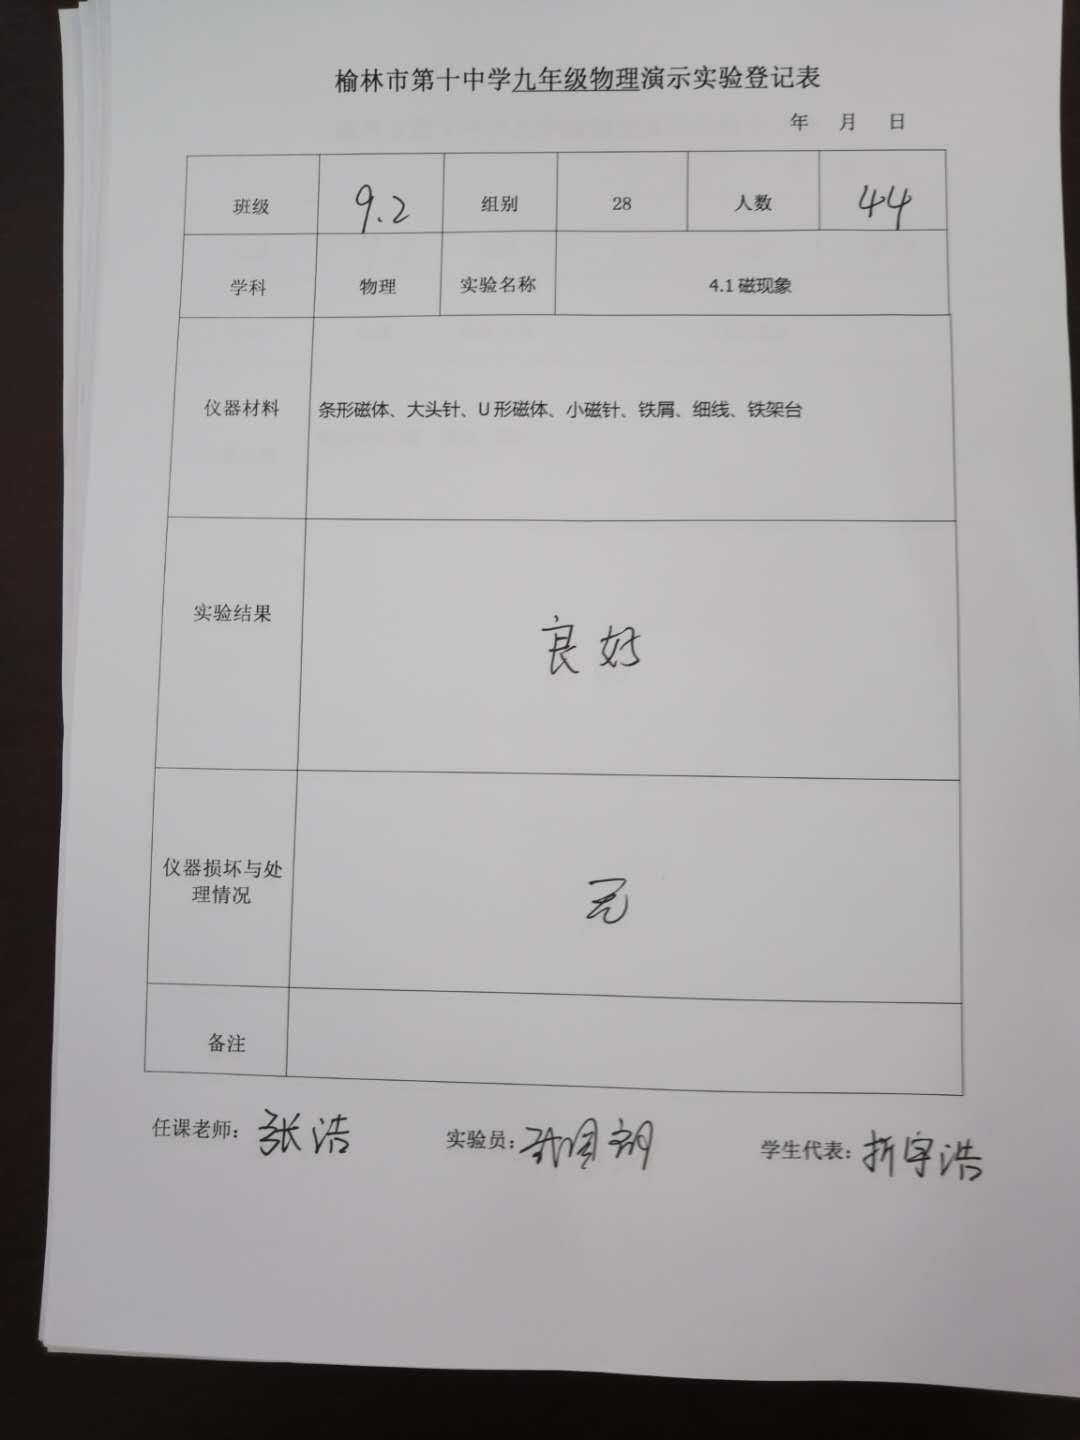 榆林市第十中学九年级物理演示实验登记表
年 月 日
班级 9.2 组别 28 人数 44
学科 物理 实验名称 4.1磁现象
仪器材料 条形磁体、大头针、U形磁体、小磁针、铁屑、细线、铁架台
实验结果 良好
仪器损坏与处
理情况 无
备注
任课老师：张洁 实验员： 学生代表：折宇浩